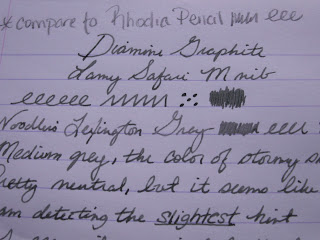 * compare to Rhodia Pencil
Diamine Graphite
Lamy Safari M nib
Noodlers Lexington Gray
Medium grey, the color of stormy
Pretty neutral, but it seems like
am detecting the slightest hint